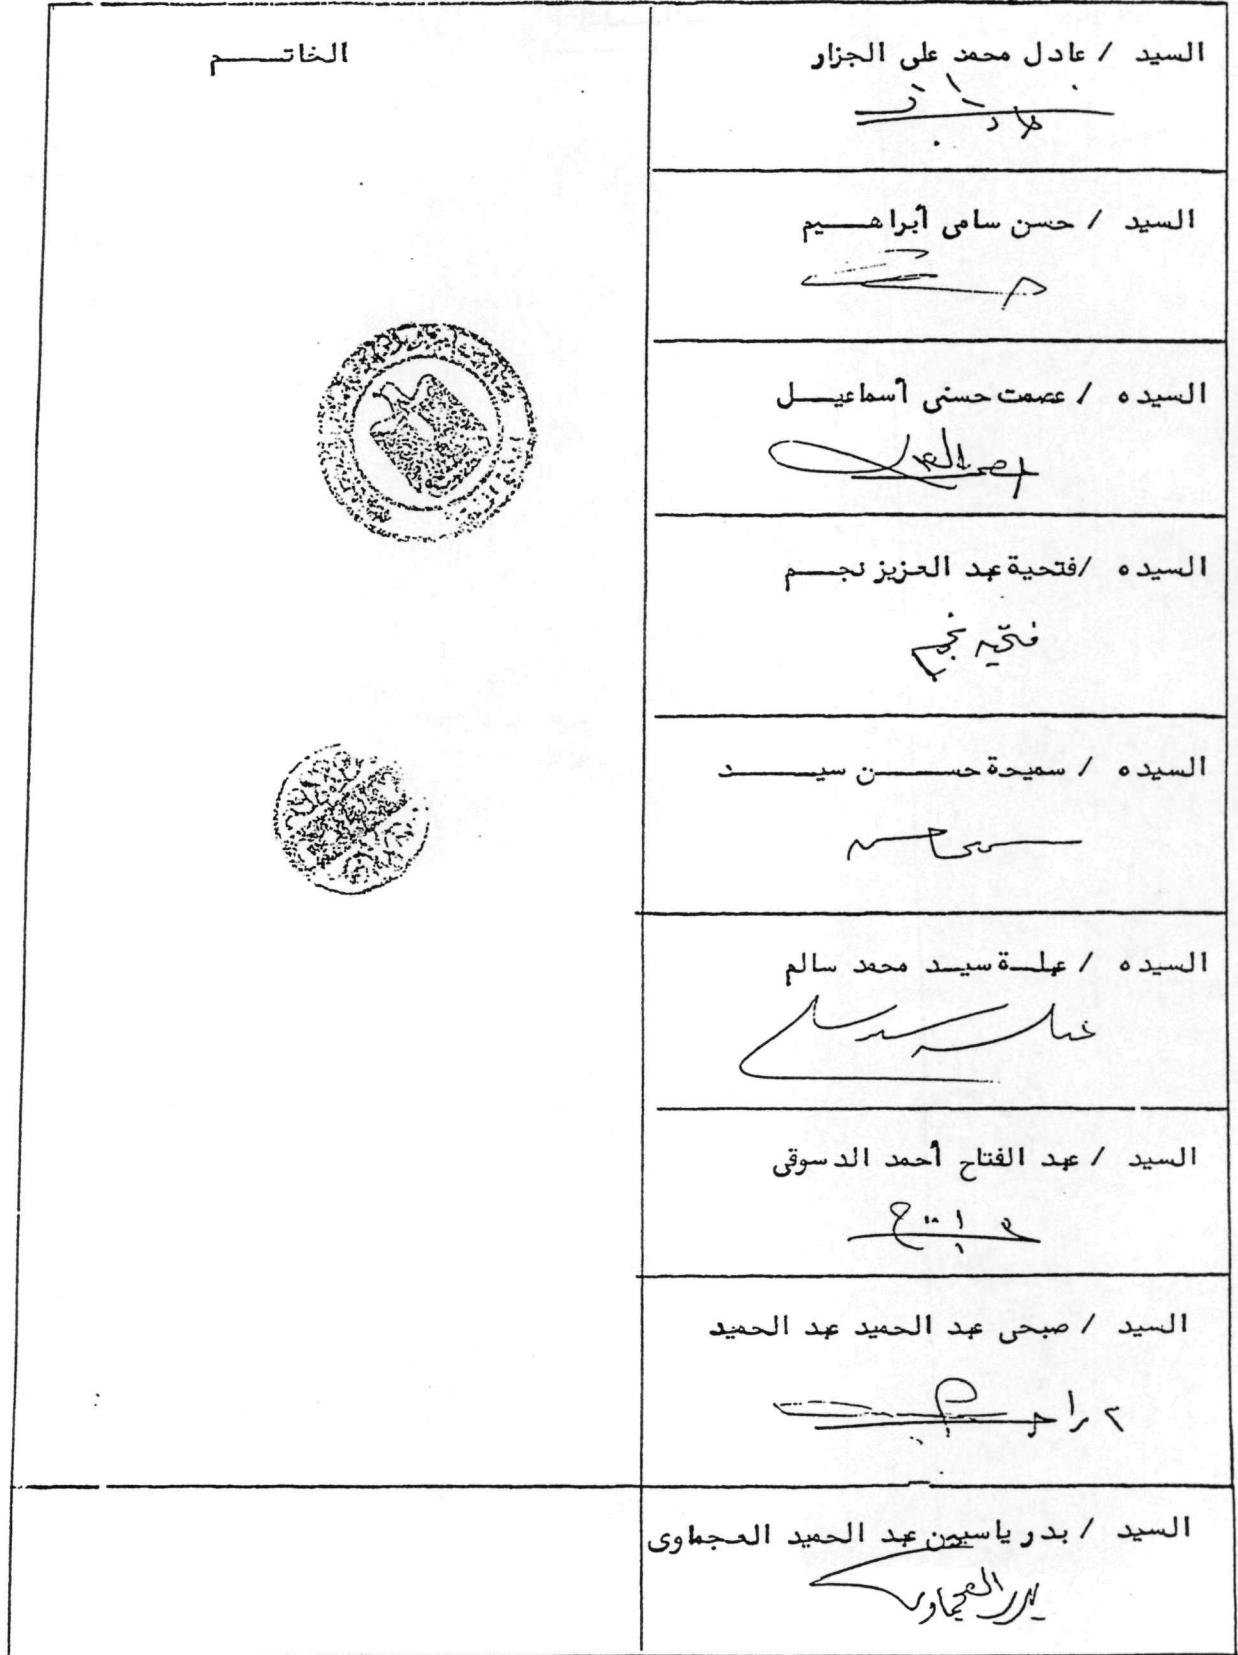 السيد / عادل محمد على الجزار
الخاتـــــم
السيد / حسن سامى أبراهـــــيم
السيده / عصمت حسنى أسماعيـــــل
السيده /فتحية عبد العزيز نجـــــم
فتحيه نجم
السيده / سميحة حســـــن سيـــــد
السيده / عبلـــة سيـــد محمد سالم
عبله سيد سالم
السيد / عبد الفتاح أحمد الدسوقى
السيد / صبحى عبد الحميد عبد الحميد
السيد / بدر ياسين عبد الحميد العجماوى
بدر العجماوى